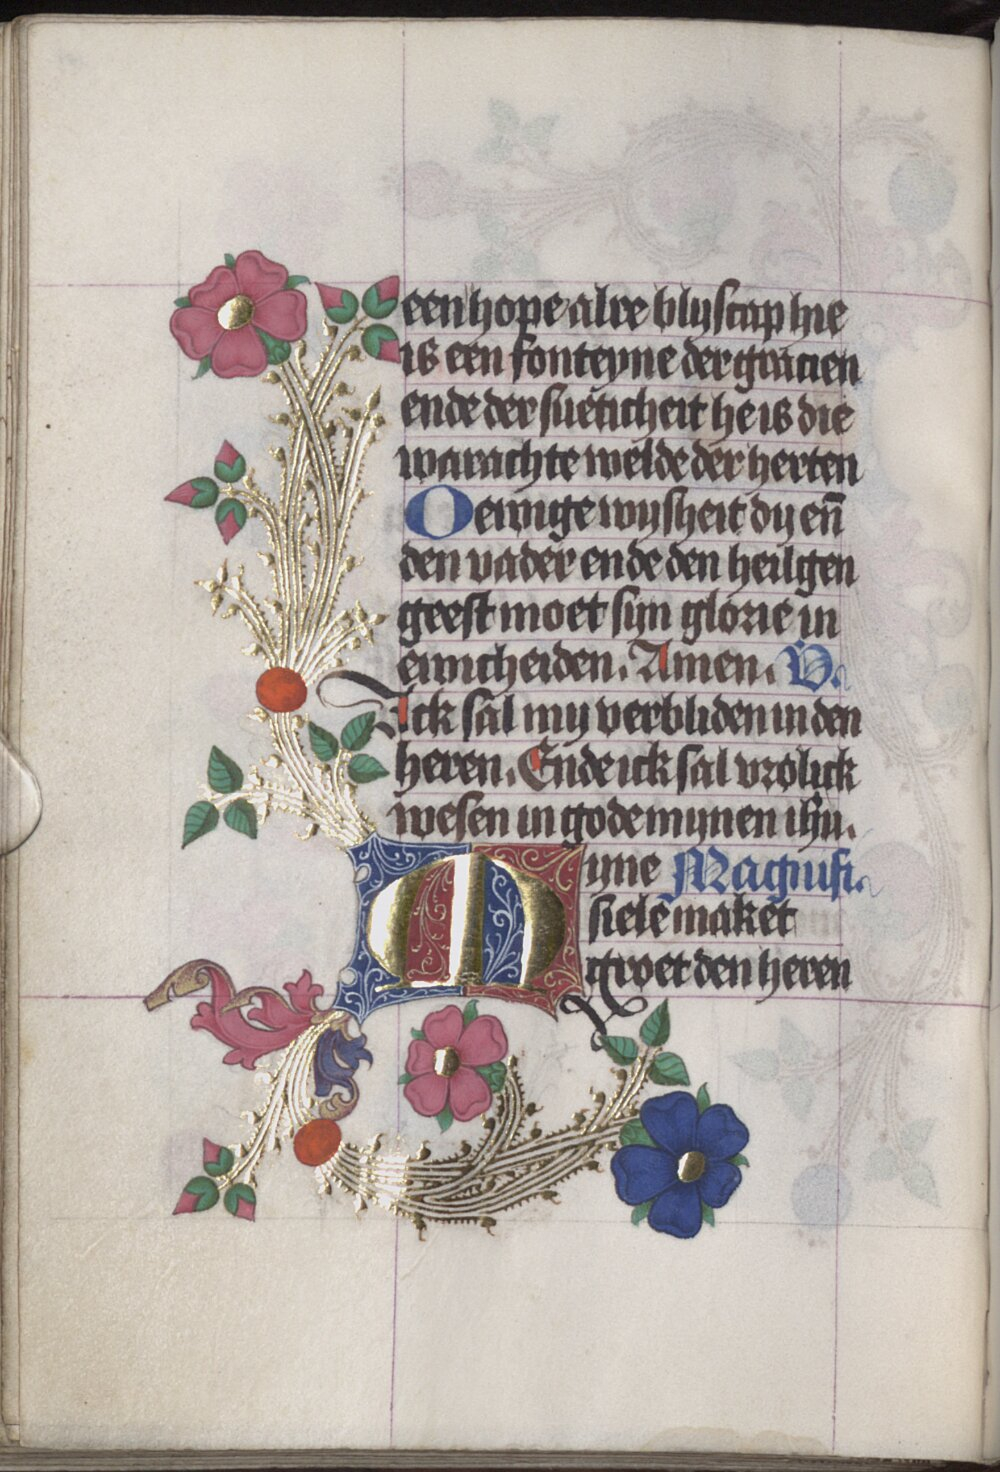 een hope alre blijscap hie
is een fonteyne der gracien
ende der sueticheit he is die
warachte welde der herten
O ewige wijsheit dij eñ
den vader ende den heilgen
geest moet sijn glorie in
ewicheiden. Amen. V.
Ick sal mij verbliden in den
heren. Ende ick sal vrolick
wesen in gode mijnen ihũ.
Mijne Magnifi
siele maket
groet den heren